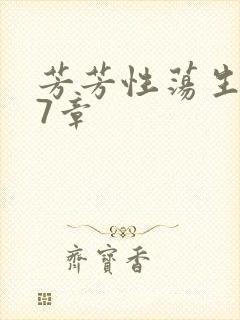 芳芳性荡生
7章
齊寶香